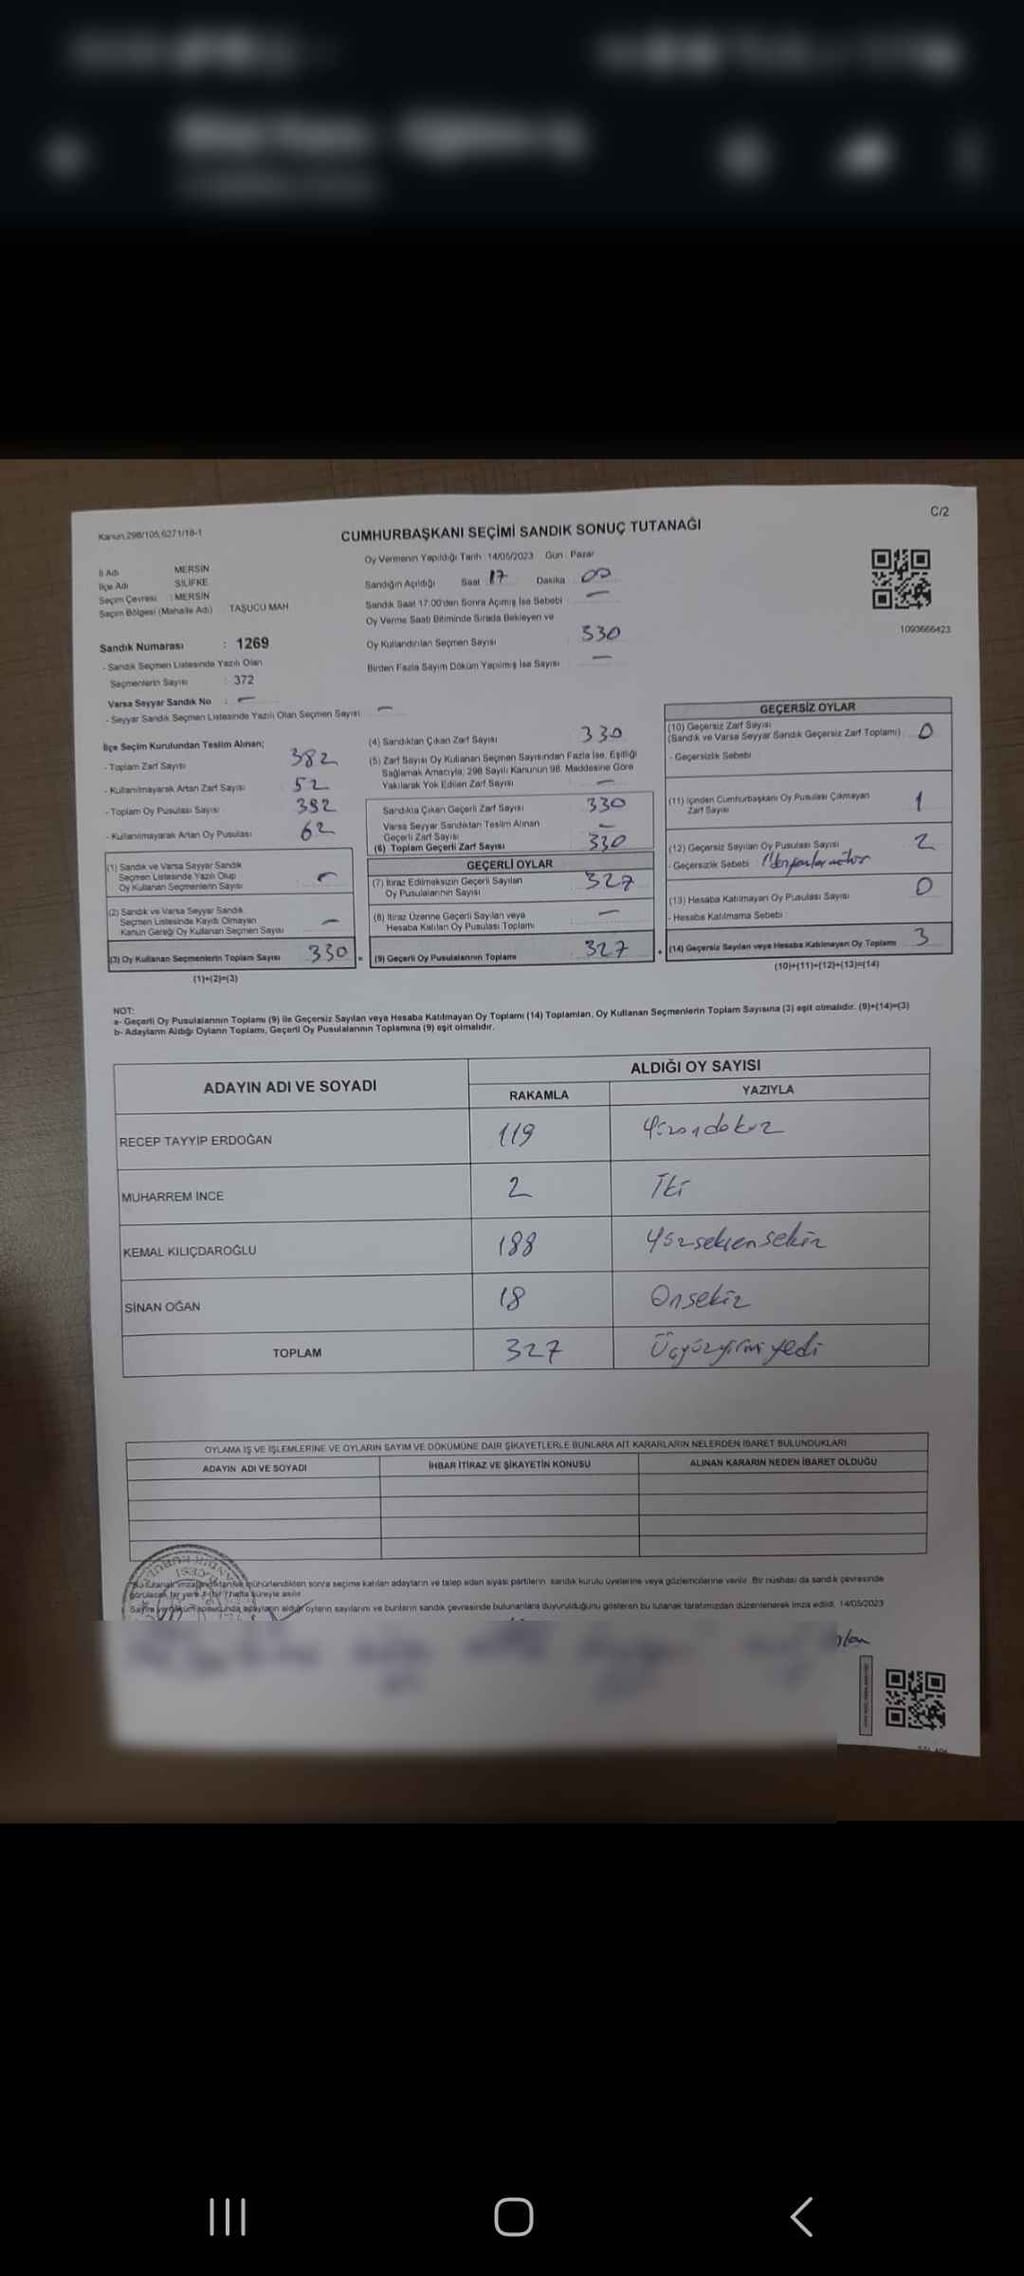 Kanun.298/105,6271/18-1
C/2
CUMHURBAŞKANI SEÇİMİ SANDIK SONUÇ TUTANAĞI
Oy Vermenin Yapıldığı Tarih : 14/05/2023 Gün : Pazar
İl Adı MERSİN
İlçe Adı SİLİFKE
Seçim Çevresi : MERSİN
Seçim Bölgesi (Mahalle Adı) TAŞUCU MAH
Sandığın Açıldığı Saat 17 Dakika 00
Sandık Saat 17:00'den Sonra Açılmış İse Sebebi —
Oy Verme Saati Bitiminde Sırada Bekleyen ve
Oy Kullandırılan Seçmen Sayısı 330
Birden Fazla Sayım Döküm Yapılmış İse Sayısı —
1093666423
Sandık Numarası : 1269
- Sandık Seçmen Listesinde Yazılı Olan
Seçmenlerin Sayısı : 372
Varsa Seyyar Sandık No : —
- Seyyar Sandık Seçmen Listesinde Yazılı Olan Seçmen Sayısı —
İlçe Seçim Kurulundan Teslim Alınan;
- Toplam Zarf Sayısı 382
- Kullanılmayarak Artan Zarf Sayısı 52
- Toplam Oy Pusulası Sayısı 392
- Kullanılmayarak Artan Oy Pusulası 62
(1) Sandık ve Varsa Seyyar Sandık
Seçmen Listesinde Yazılı Olup
Oy Kullanan Seçmenlerin Sayısı —
(2) Sandık ve Varsa Seyyar Sandık
Seçmen Listesinde Kayıtlı Olmayan
Kanun Gereği Oy Kullanan Seçmen Sayısı —
(3) Oy Kullanan Seçmenlerin Toplam Sayısı 330
(1)+(2)=(3)
(4) Sandıktan Çıkan Zarf Sayısı 330
(5) Zarf Sayısı Oy Kullanan Seçmen Sayısından Fazla İse, Eşitliği
Sağlamak Amacıyla, 298 Sayılı Kanunun 98. Maddesine Göre
Yakılarak Yok Edilen Zarf Sayısı —
Sandıkta Çıkan Geçerli Zarf Sayısı 330
Varsa Seyyar Sandıktan Teslim Alınan
Geçerli Zarf Sayısı —
(6) Toplam Geçerli Zarf Sayısı 330
GEÇERLİ OYLAR
(7) İtiraz Edilmeksizin Geçerli Sayılan
Oy Pusulalarının Sayısı 327
(8) İtiraz Üzerine Geçerli Sayılan veya
Hesaba Katılan Oy Pusulası Toplamı —
(9) Geçerli Oy Pusulalarının Toplamı 327
GEÇERSİZ OYLAR
(10) Geçersiz Zarf Sayısı
(Sandık ve Varsa Seyyar Sandık Geçersiz Zarf Toplamı) 0
- Geçersizlik Sebebi
(11) İçinden Cumhurbaşkanı Oy Pusulası Çıkmayan
Zarf Sayısı 1
(12) Geçersiz Sayılan Oy Pusulası Sayısı 2
- Geçersizlik Sebebi
(13) Hesaba Katılmayan Oy Pusulası Sayısı 0
- Hesaba Katılmama Sebebi
(14) Geçersiz Sayılan veya Hesaba Katılmayan Oy Toplamı 3
(10)+(11)+(12)+(13)=(14)
NOT:
a- Geçerli Oy Pusulalarının Toplamı (9) ile Geçersiz Sayılan veya Hesaba Katılmayan Oy Toplamı (14) Toplamları, Oy Kullanan Seçmenlerin Toplam Sayısına (3) eşit olmalıdır. (9)+(14)=(3)
b- Adayların Aldığı Oyların Toplamı, Geçerli Oy Pusulalarının Toplamına (9) eşit olmalıdır.
ADAYIN ADI VE SOYADI ALDIĞI OY SAYISI
RAKAMLA YAZIYLA
RECEP TAYYİP ERDOĞAN 119 Yüzondokuz
MUHARREM İNCE 2 İki
KEMAL KILIÇDAROĞLU 188 Yüzseksensekiz
SİNAN OĞAN 18 Onsekiz
TOPLAM 327 Üçyüzyirmi yedi
OYLAMA İŞ VE İŞLEMLERİNE VE OYLARIN SAYIM VE DÖKÜMÜNE DAİR ŞİKAYETLERLE BUNLARA AİT KARARLARIN NELERDEN İBARET BULUNDUKLARI
ADAYIN ADI VE SOYADI İHBAR İTİRAZ VE ŞİKAYETİN KONUSU ALINAN KARARIN NEDEN İBARET OLDUĞU
Bu tutanak mühürlendikten sonra seçime katılan adayların ve talep eden siyasi partilerin sandık kurulu üyelerine veya gözlemcilerine verilir. Bir nüshası da sandık çevresinde
görülecek bir yere hafta süreyle asılır.
Sayım ve döküm sonucunda, adayların aldığı oyların sayılarını ve bunların sandık çevresinde bulunanlara duyurulduğunu gösteren bu tutanak tarafımızdan düzenlenerek imza edildi. 14/05/2023